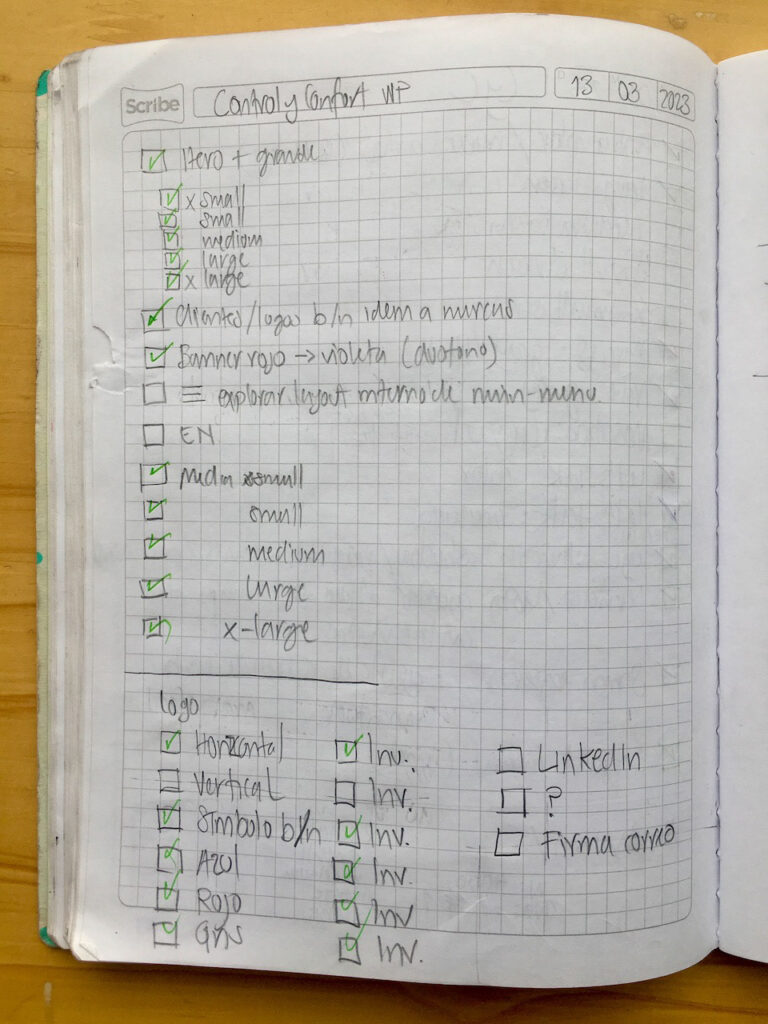 Scribe Control y Confort WP 13 03 2023
Hero + grande
x small
small
medium
large
x large
Clientes/logos b/n idem a marcas
Banner rojo → violeta (duotono)
explorar layout interno de main-menu
EN
Media xsmall
small
medium
large
x-large
logo
Horizontal Inv. LinkedIn
Vertical Inv. ?
Símbolo b/n Inv. Firma correo
Azul Inv.
Rojo Inv
Gris Inv.